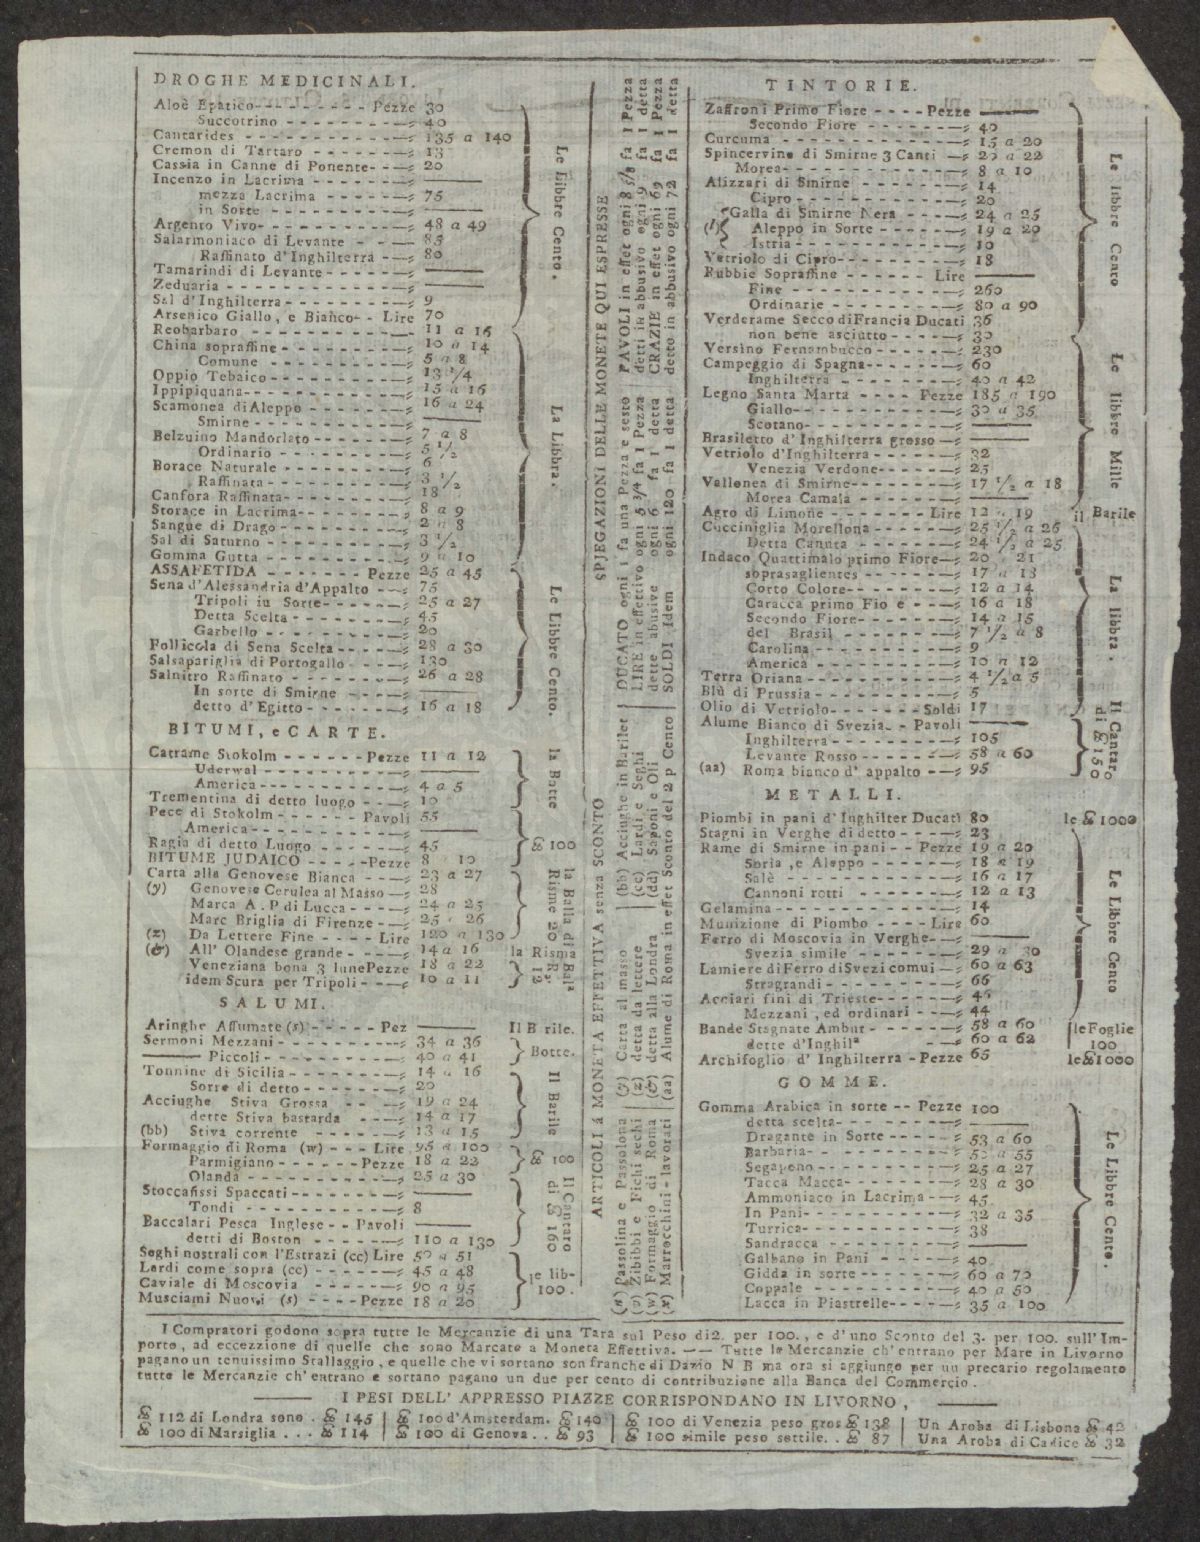 DROGHE MEDICINALI.
Aloè Epatico - - - - - - - - Pezze 30
Succotrino - - - - - - - - - - 40
Cantarides - - - - - - - - - - - 135 a 140
Cremon di Tartaro - - - - - - - 13
Cassia in Canne di Ponente - - - 20
Incenzo in Lacrima - - - - - - - ———
mezza Lacrima - - - - - - 75
in Sorte - - - - - - - - - ———
Argento Vivo - - - - - - - - - - 48 a 49
Salarmoniaco di Levante - - - - 85
Raffinato d'Inghilterra - - - 80
Tamarindi di Levante - - - - - - ———
Zeduaria - - - - - - - - - - - - ———
Sal d'Inghilterra - - - - - - - - 9
Arsenico Giallo, e Bianco - - Lire 70
Reobarbaro - - - - - - - - - - - 11 a 16
China sopraffine - - - - - - - - 10 a 14
Comune - - - - - - - - - 5 a 8
Oppio Tebaico - - - - - - - - - 13 1/4
Ippipiquana - - - - - - - - - - 15 a 16
Scamonea di Aleppo - - - - - - - 16 a 24
Smirne - - - - - - - - - - ———
Belzuino Mandorlato - - - - - - 7 a 8
Ordinario - - - - - - - - - 5 1/2
Borace Naturale - - - - - - - - 6
Raffinata - - - - - - - - - 3 1/2
Canfora Raffinata - - - - - - - 18
Storace in Lacrima - - - - - - - 8 a 9
Sangue di Drago - - - - - - - - 2 a 8
Sal di Saturno - - - - - - - - - 3 1/2
Gomma Gutta - - - - - - - - - - 9 a 10
ASSAFETIDA - - - - - - - Pezze 25 a 45
Sena d'Alessandria d'Appalto - - 75
Tripoli in Sorte - - - - - - 25 a 27
Detta Scelta - - - - - - - - 45
Garbello - - - - - - - - - - 20
Follicola di Sena Scelta - - - - 28 a 30
Salsapariglia di Portogallo - - - 130
Salnitro Raffinato - - - - - - - 26 a 28
In sorte di Smirne - - - - - ———
detto d'Egitto - - - - - - - 16 a 18
Le Libbre Cento.
La Libbra.
Le Libbre Cento.
BITUMI, e CARTE.
Catrame Stokolm - - - - - - Pezze 11 a 12
Uderwal - - - - - - - - - - ———
America - - - - - - - - - - 4 a 5
Trementina di detto luogo - - - 10
Pece di Stokolm - - - - - Pavoli 55
America - - - - - - - - - - ———
Ragia di detto Luogo - - - - - - 45
BITUME JUDAICO - - - - - Pezze 8 a 10
Carta alla Genovese Bianca - - - 23 a 27
(y) Genovese Cerulea al Masso - 28
Marca A. P di Lucca - - - - 24 a 25
Marc Briglia di Firenze - - - 25 a 26
(z) Da Lettere Fine - - - - Lire 120 a 130
(&) All' Olandese grande - - - - 14 a 16
Veneziana bona 3 lune Pezze 18 a 22
idem Scura per Tripoli - - - - 10 a 11
la Botte
℔ 100
la Balla di Risme 20
la Risma
Balª Rª. 12
SALUMI.
Aringhe Affumate (s) - - - - - Pez ———
Sermoni Mezzani - - - - - - - - 34 a 36
——— Piccoli - - - - - - - - 40 a 41
Tonnine di Sicilia - - - - - - - 14 a 16
Sorre di detto - - - - - - - 20
Acciughe Stiva Grossa - - - - - 19 a 24
dette Stiva bastarda - - - - 14 a 17
(bb) Stiva corrente - - - - - - 13 a 15
Formaggio di Roma (w) - - - Lire 95 a 100
Parmigiano - - - - - - - Pezze 18 a 22
Olanda - - - - - - - - - - 25 a 30
Stoccafissi Spaccati - - - - - - ———
Tondi - - - - - - - - - - - 8
Baccalari Pesca Inglese - - Pavoli ———
detti di Boston - - - - - - 110 a 130
Seghi nostrali con l'Estrazi (cc) Lire 50 a 51
Lardi come sopra (cc) - - - - - 45 a 48
Caviale di Moscovia - - - - - - 90 a 95
Musciami Nuovi (s) - - - - Pezze 18 a 20
Il B rile.
Botte.
Il Barile
℔ 100
Il Cantaro di ℔ 160
le lib- 100.
SPJEGAZIONI DELLE MONETE QUI ESPRESSE
DUCATO ogni 1 fa una Pezza e sesto
LIRE in effettivo ogni 5 3/4 fa 1 Pezza
dette abusive ogni 6 fa 1 detta
SOLDI Idem ogni 120 fa 1 detta
PAVOLI in effet ogni 8 5/8 fa 1 Pezza
detti in abbusivo ogni 9 fa 1 detta
CRAZIE in effet ogni 69 fa 1 Pezza
detto in abbusivo ogni 72 fa 1 detta
ARTICOLI á MONETA EFFETTIVA senza SCONTO
(u) Passolina e Passolona
(v) Zibibbi e Fichi secchi
(w) Formaggio di Roma
(x) Marrocchini - lavorati
(y) Carta al masso
(z) detta da lettere
(&) detta alla Londra
(aa) Alume di Roma in effet Sconto del 2 p Cento
(bb) Acciughe in Barilet
(cc) Lardi e Seghi
(dd) Saponi e Olj
TINTORIE.
Zaffroni Primo Fiore - - - - Pezze ———
Secondo Fiore - - - - - - - 40
Curcuma - - - - - - - - - - - - 15 a 20
Spincervino di Smirne 3 Canti — 20 a 22
Morea - - - - - - - - - - - 8 a 10
Alizzari di Smirne - - - - - - - 14
Cipro - - - - - - - - - - - 20
Galla di Smirne Nera - - - - 24 a 25
(l) Aleppo in Sorte - - - - - - 19 a 20
Istria - - - - - - - - - - - 10
Vetriolo di Cipro - - - - - - - - 18
Rubbie Sopraffine - - - - - Lire ———
Fine - - - - - - - - - - - 260
Ordinarie - - - - - - - - - 80 a 90
Verderame Secco di Francia Ducati 36
non bene asciutto - - - - - 30
Versino Fernambucco - - - - - - 230
Campeggio di Spagna - - - - - - 60
Inghilterra - - - - - - - - 40 a 42
Legno Santa Marta - - - - Pezze 185 a 190
Giallo - - - - - - - - - - 30 a 35
Scotano - - - - - - - - - - ———
Brasiletto d' Inghilterra grosso — ———
Vetriolo d'Inghilterra - - - - - 32
Venezia Verdone - - - - - - 25
Vallonea di Smirne - - - - - - - 17 1/2 a 18
Morea Camala - - - - - - - ———
Agro di Limone - - - - - - Lire 12 a 19
Cucciniglia Morellona - - - - - 25 1/2 a 26
Detta Canuta - - - - - - - 24 1/2 a 25
Indaco Quattimalo primo Fiore - 20 21
soprasaglientes - - - - - - 17 a 18
Corto Colore - - - - - - - 12 a 14
Caracca primo Fio e - - - - 16 a 18
Secondo Fiore - - - - - - - 14 a 15
del Brasil - - - - - - - - 7 1/2 a 8
Carolina - - - - - - - - - 9
America - - - - - - - - - - 10 a 12
Terra Oriana - - - - - - - - - 4 1/2 a 5
Blù di Prussia - - - - - - - - - 5
Olio di Vetriolo - - - - - - Soldi 17
Alume Bianco di Svezia - - Pavoli ———
Inghilterra - - - - - - - - 105
Levante Rosso - - - - - - - 58 a 60
(aa) Roma bianco d' appalto - - 95
Le libbre Cento
Le libbre Mille
il Barile
La libbra.
Il Cantaro di ℔ 150
METALLI.
Piombi in pani d'Inghilter Ducati 80
Stagni in Verghe di detto - - - - 23
Rame di Smirne in pani - - Pezze 19 a 20
Soria, e Aleppo - - - - - - 18 a 19
Salè - - - - - - - - - - - 16 a 17
Cannoni rotti - - - - - - - 12 a 13
Gelamina - - - - - - - - - - - 14
Munizione di Piombo - - - Lire 60
Ferro di Moscovia in Verghe - - ———
Svezia simile - - - - - - - 29 a 30
Lamiere di Ferro di Svezi comui - 60 a 63
Stragrandi - - - - - - - - 66
Acciari fini di Trieste - - - - - 46
Mezzani, ed ordinari - - - - 44
Bande Stagnate Ambur - - - - - 58 a 60
dette d'Inghilª - - - - - - 60 a 62
Archifoglio d' Inghilterra - Pezze 65
le ℔ 1000
Le Libbre Cento
le Foglie 100
le ℔ 1000
GOMME.
Gomma Arabica in sorte - - Pezze 100
detta scelta - - - - - - - - ———
Dragante in Sorte - - - - - 53 a 60
Barbaria - - - - - - - - - 50 a 55
Segapeno - - - - - - - - - 25 a 27
Tacca Macca - - - - - - - - 28 a 30
Ammoniaco in Lacrima - - - 45
In Pani - - - - - - - - - - 32 a 35
Turrica - - - - - - - - - - 38
Sandracca - - - - - - - - - ———
Galbano in Pani - - - - - - 40
Gidda in sorte - - - - - - - 60 a 70
Coppale - - - - - - - - - - 40 a 50
Lacca in Piastrelle - - - - - 35 a 100
Le Libbre Cento.
I Compratori godono sopra tutte le Mercanzie di una Tara sul Peso di 2. per 100., e d'uno Sconto del 3. per 100. sull'Im-
porto, ad eccezione di quelle che sono Marcate a Moneta Effettiva. —— Tutte le Mercanzie ch'entrano per Mare in Livorno
pagano un tenuissimo Stallaggio, e quelle che vi sortano son franche di Dazio N B ma ora si aggiunge per un precario regolamento
tutte le Mercanzie ch'entrano e sortano pagano un due per cento di contribuzione alla Banca del Commercio.
——— I PESI DELL' APPRESSO PIAZZE CORRISPONDANO IN LIVORNO, ———
℔ 112 di Londra sono . ℔ 145 | ℔ 100 d'Amsterdam. ℔ 140 | ℔ 100 di Venezia peso gros ℔ 138 | Un Aroba di Lisbona ℔ 42
℔ 100 di Marsiglia . . . ℔ 114 | ℔ 100 di Genova . . ℔ 93 | ℔ 100 simile peso sottile. . ℔ 87 | Una Aroba di Cadice ℔ 32